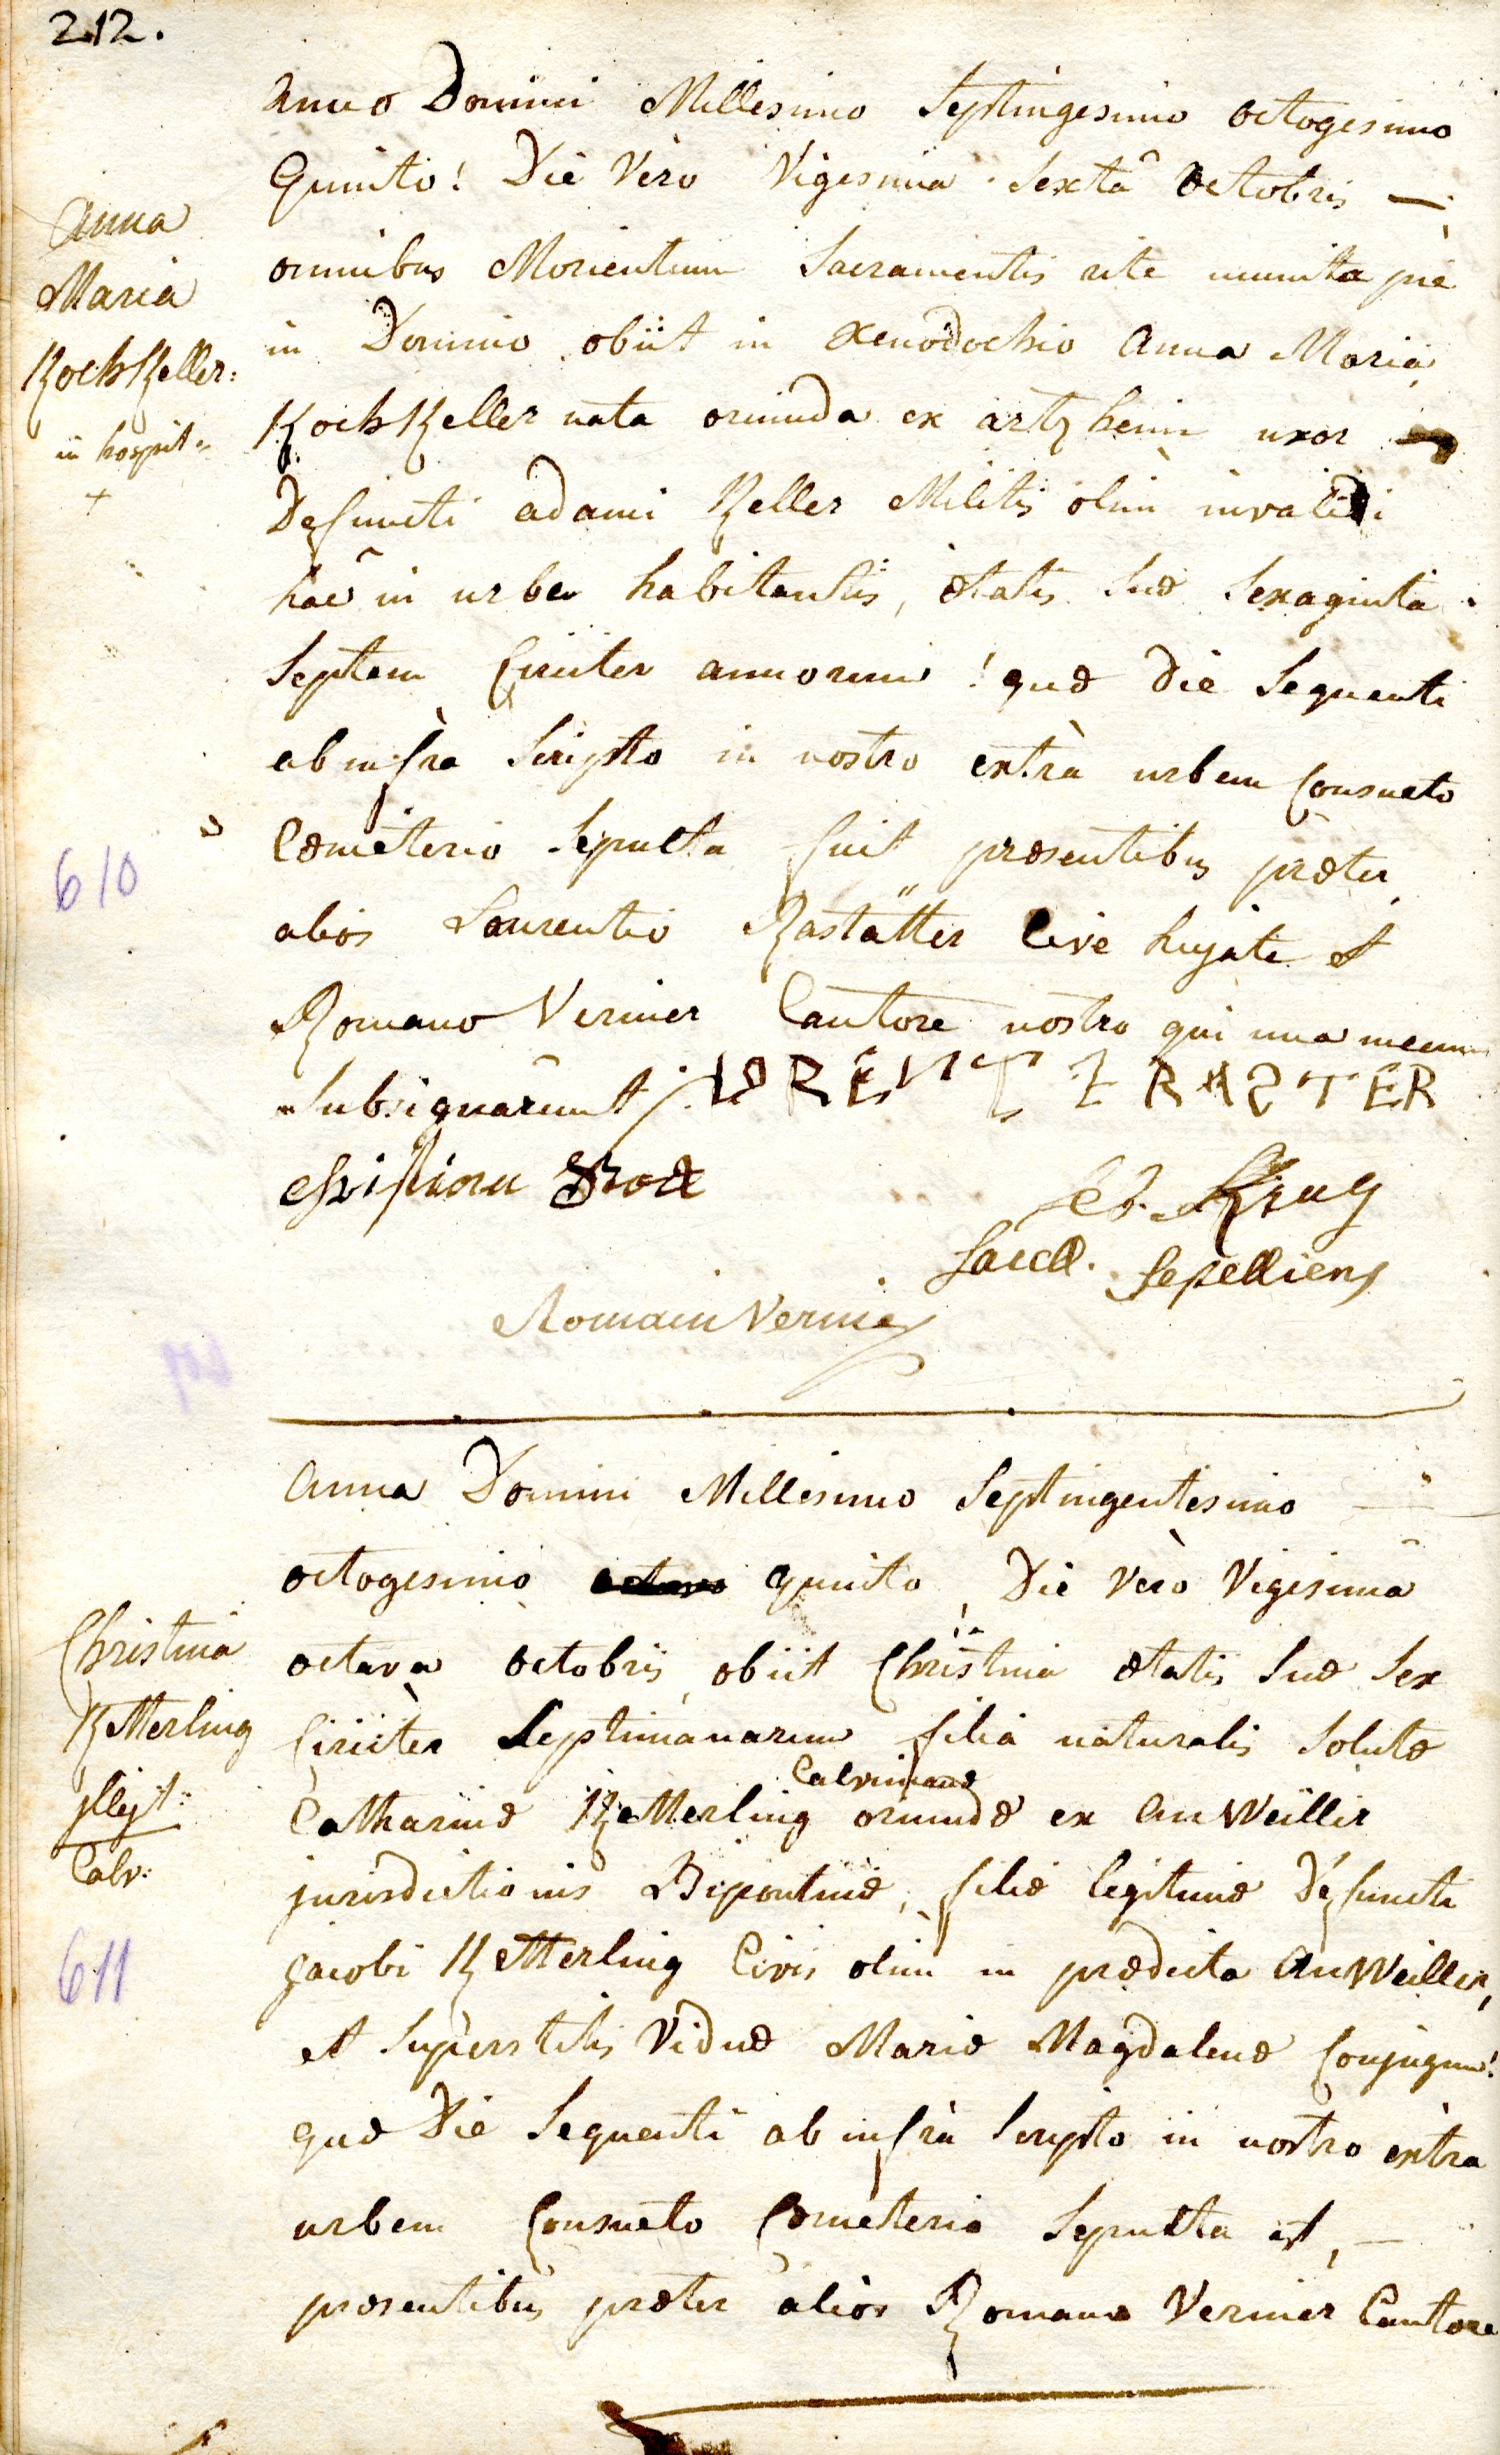 212.
Anno Domini Millesimo Septingesimo octogesimo
Quinto! Die Vero Vigesima Sextâ octobris —
omnibus Morientium Sacramentis rite munita pie
in Domino obiit in Xenodochio Anna Maria
Koch Keller nata oriunda ex artzheim uxor
Defuncti adami Keller Militis olim invalidi
hac in urbe habitantis, ætatis suæ Sexaginta
Septem Circiter annorum! quæ Die Sequenti
ab infra Scripto in nostro extrà urbem Consueto
Cœmeterio Sepulta fuit præsentibus præter
alios Laurentio Rastätter Cive hujate et
Romano Vernier Cantore nostro qui una mecum
Subsignarunt / LORENTZ RASTER
Seb. Krug
Sacell. Sepelliens
Romain Vernier
Anna
Maria
Koch Keller:
in hospit.
+
610
Anna Domini Millesimo Septingentesimo —
octogesimo quinto, Die Vero Vigesimâ
octava octobris, obiit Christina ætatis suæ Sex
Circiter Septimanarum filia naturalis Solutæ
Catharinæ Ketterling Calvinianæ oriundæ ex AnWeiller
jurisdictionis Bipontinæ, filiæ legitimæ Defuncti
jacobi Ketterling Civis olim in prædicta AnWeiller,
et Superstitis Viduæ Mariæ Magdalenæ Conjugum!
quæ Die Sequenti ab infrà Scripto in nostro extra
urbem Consueto Cœmeterio Sepulta est, —
præsentibus præter alios Romano Vernier Cantore
Christina
Ketterling
jllegt:
Calv:
611